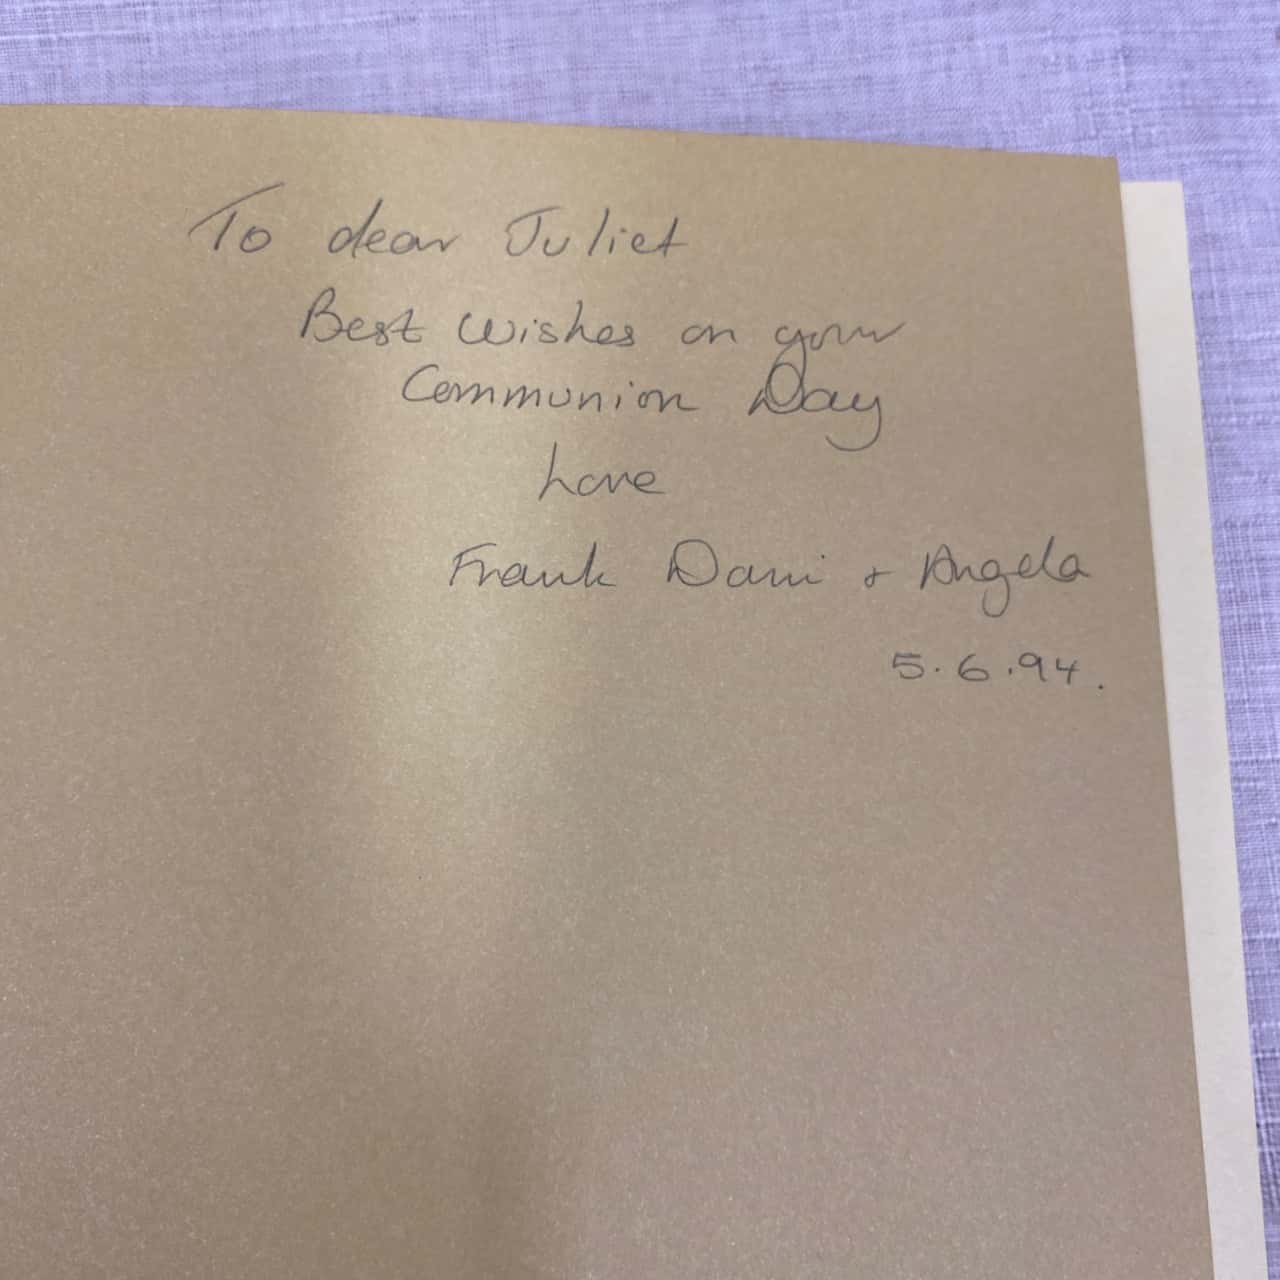 To dear Juliet
Best Wishes on your
Communion Day
Love
Frank Dani & Angela
5.6.94.